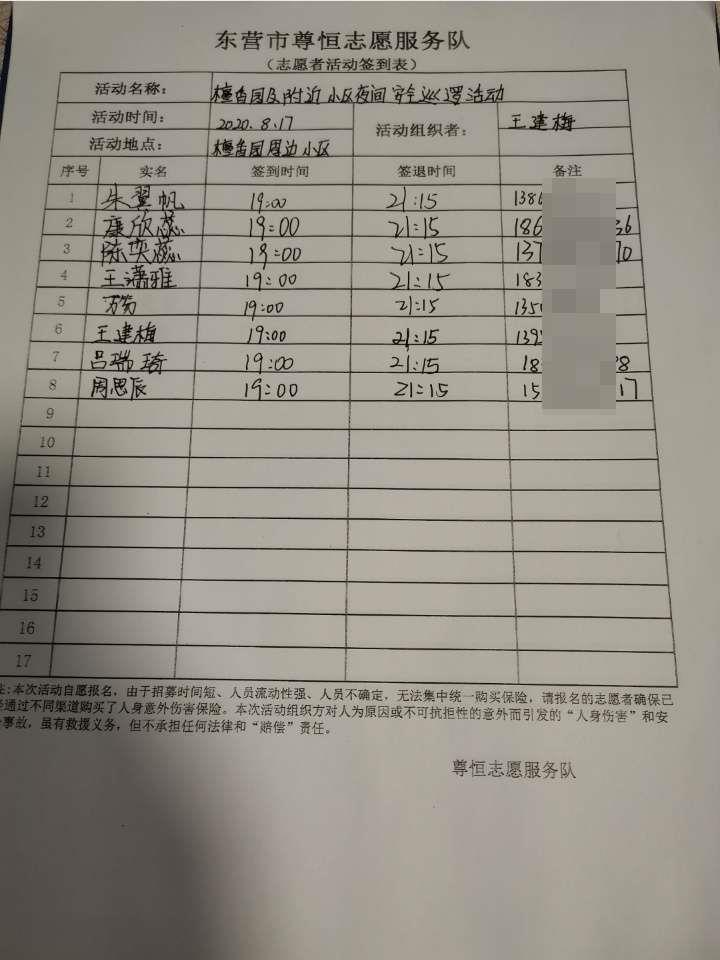 东营市尊恒志愿服务队
（志愿者活动签到表）
活动名称： 檀香园及附近小区夜间安全巡逻活动
活动时间： 2020.8.17 活动组织者： 王建梅
活动地点： 檀香园周边小区
序号 实名 签到时间 签退时间 备注
1 朱翼帆 19:00 21:15 1386
2 康欣蕊 19:00 21:15 186 36
3 陈奕蕊 19:00 21:15 137 70
4 王潇雅 19:00 21:15 183
5 19:00 21:15 1350
6 王建梅 19:00 21:15 139
7 吕瑞琦 19:00 21:15 18 8
8 周思辰 19:00 21:15 15 17
9
10
11
12
13
14
15
16
17
注:本次活动自愿报名，由于招募时间短、人员流动性强、人员不确定，无法集中统一购买保险，请报名的志愿者确保已
经通过不同渠道购买了人身意外伤害保险。本次活动组织方对人为原因或不可抗拒性的意外而引发的“人身伤害”和安
全事故，虽有救援义务，但不承担任何法律和“赔偿”责任。
尊恒志愿服务队